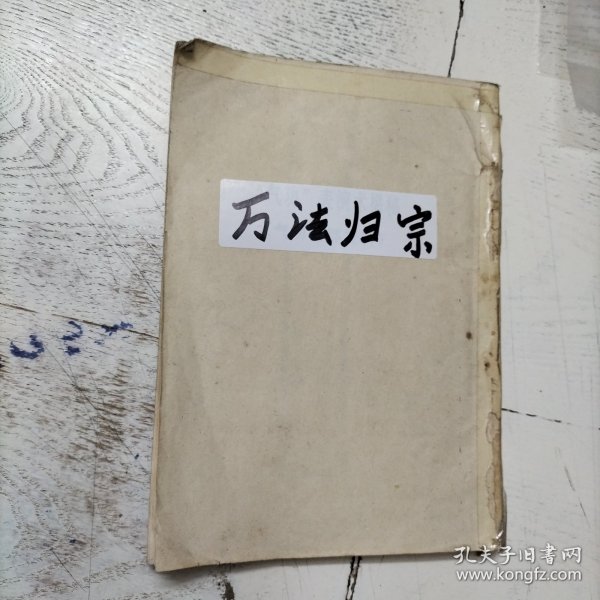 万法归宗
孔夫子旧書网
www.kongfz.com